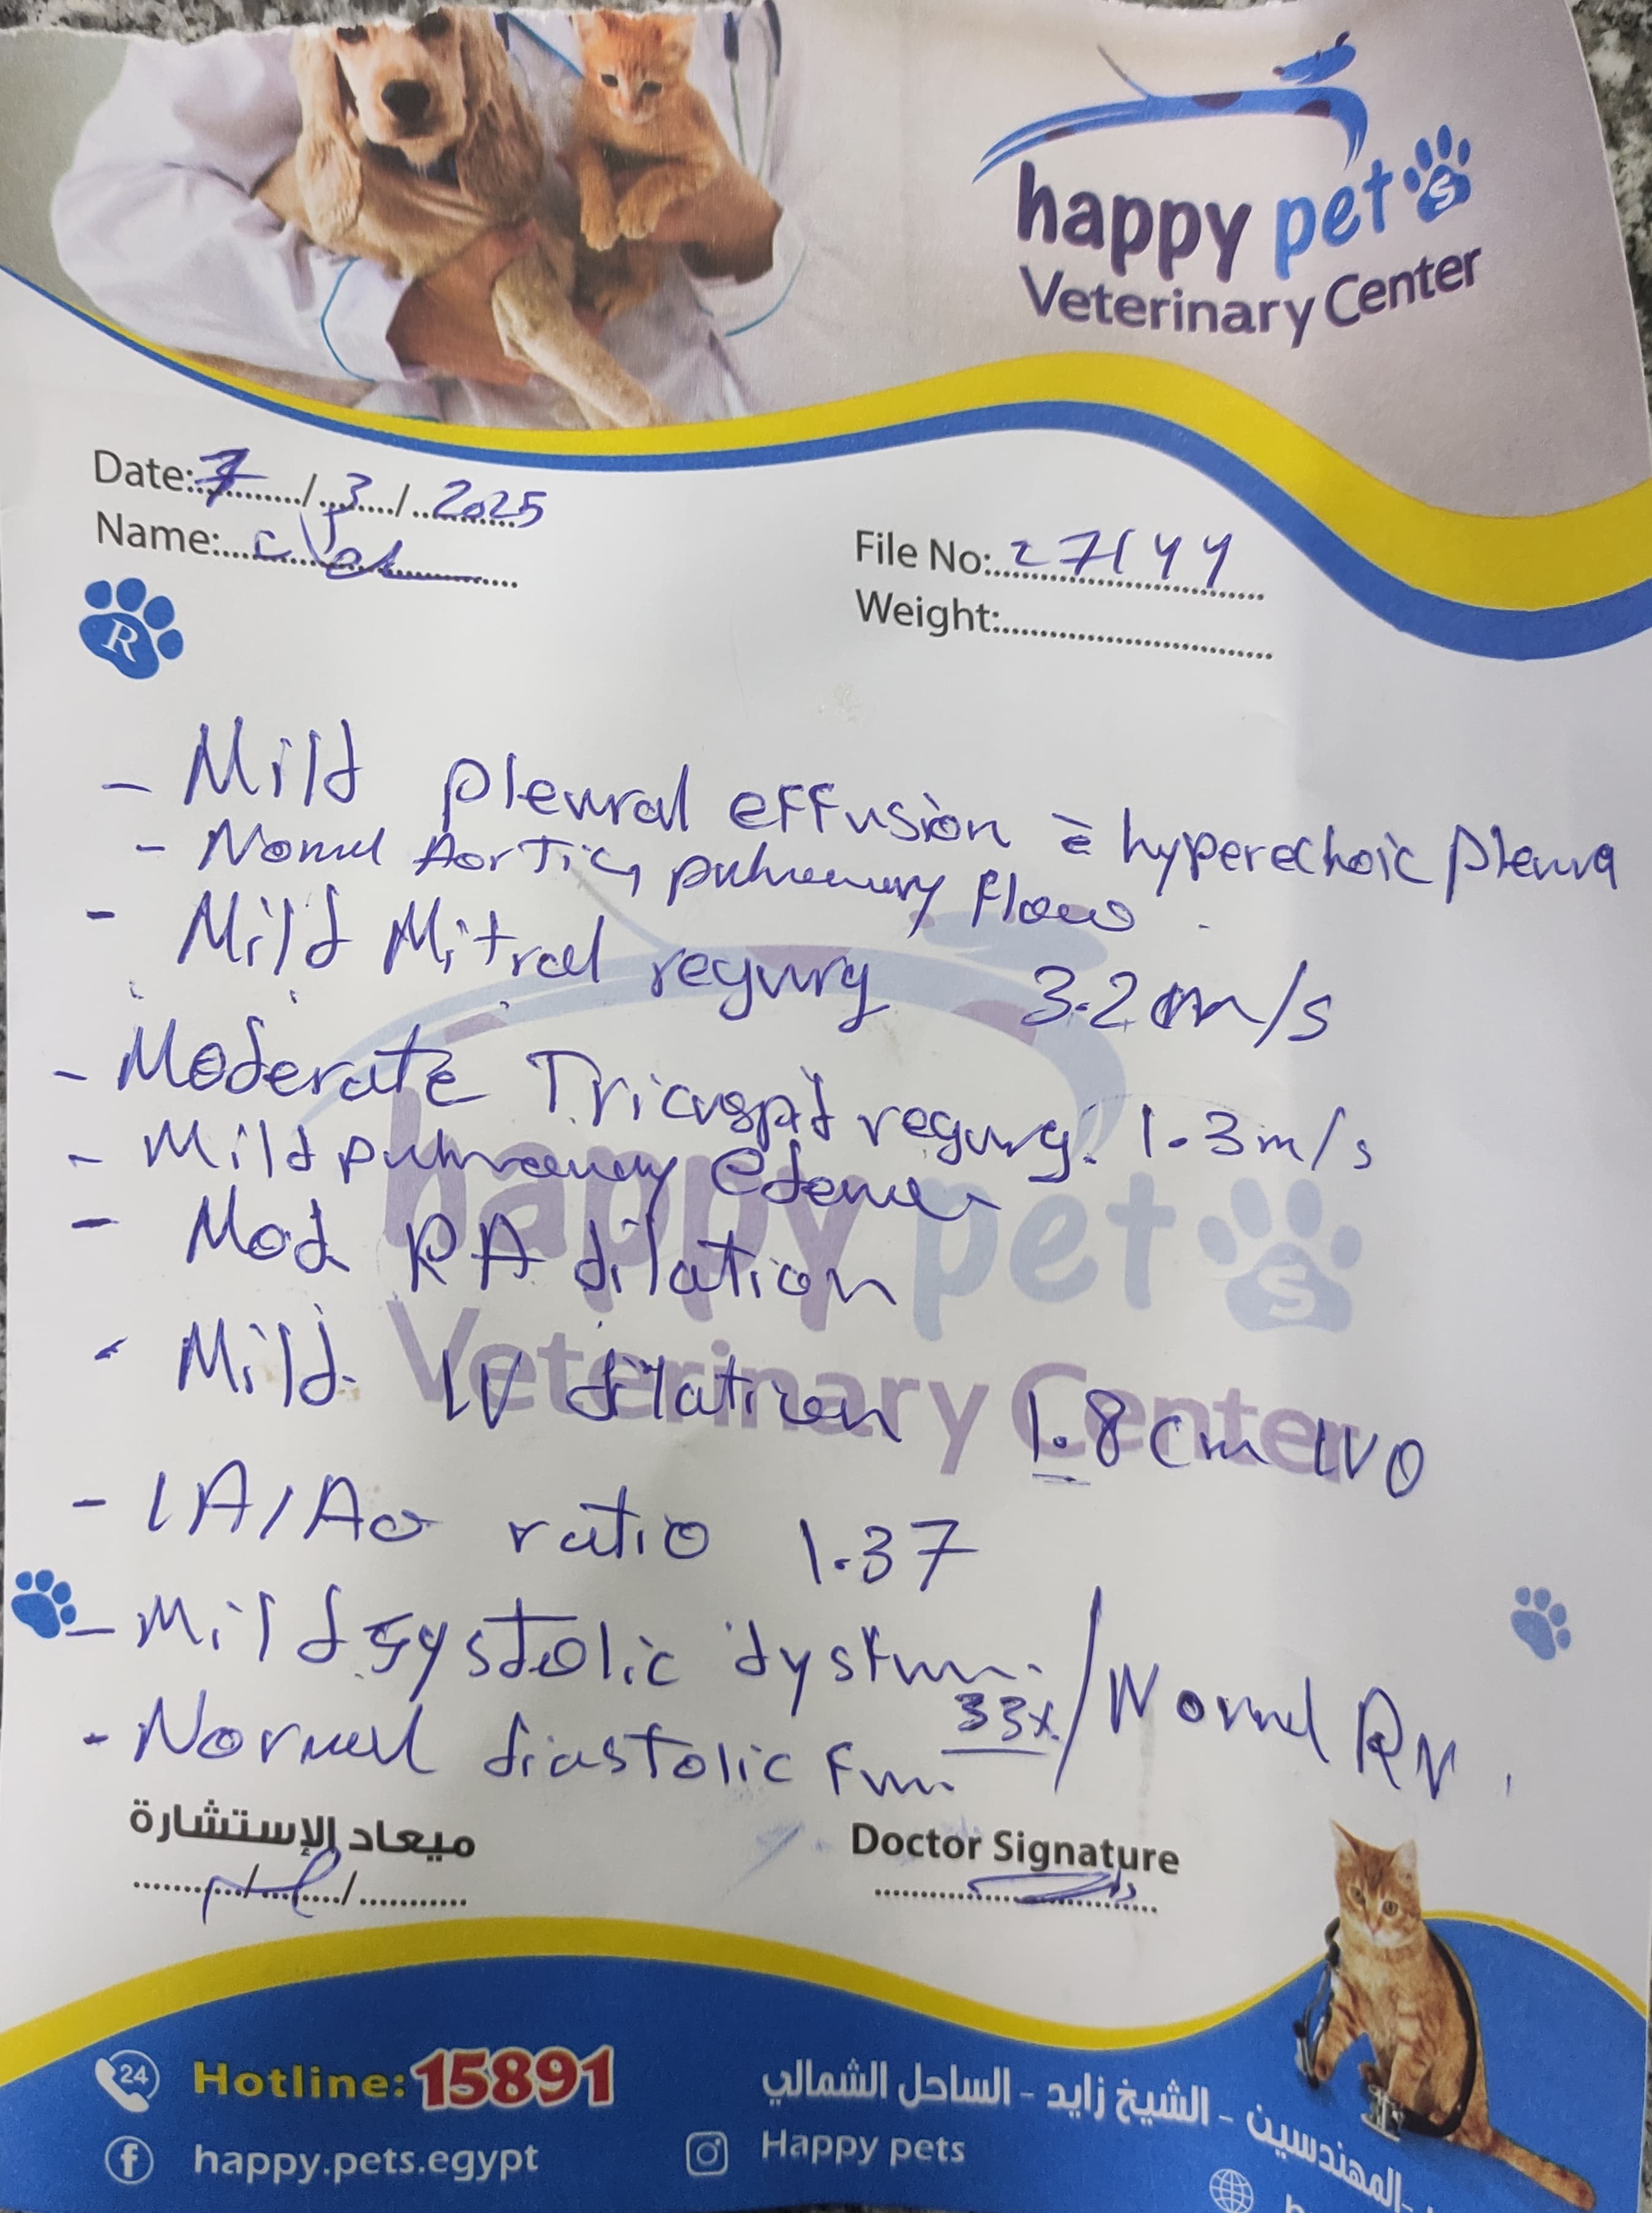 happy pets
Veterinary Center
Date: 7 / 3 / 2025
Name:
File No: 27144
Weight:
R
- Mild pleural effusion c̄ hyperechoic pleura
- Normal Aortic, pulmonary flow
- Mild Mitral regurg 3.2 m/s
- Moderate Tricuspid regurg. 1.3 m/s
- Mild pulmonary edema
- Mod RA dilation
- Mild LV dilation 1.8 cm LVD
- LA/Ao ratio 1.37
- Mild systolic dysfun. 33% / Normal RV.
- Normal diastolic fun.
ميعاد الإستشارة
Doctor Signature
24 Hotline: 15891
المهندسين - الشيخ زايد - الساحل الشمالي
happy.pets.egypt
Happy pets